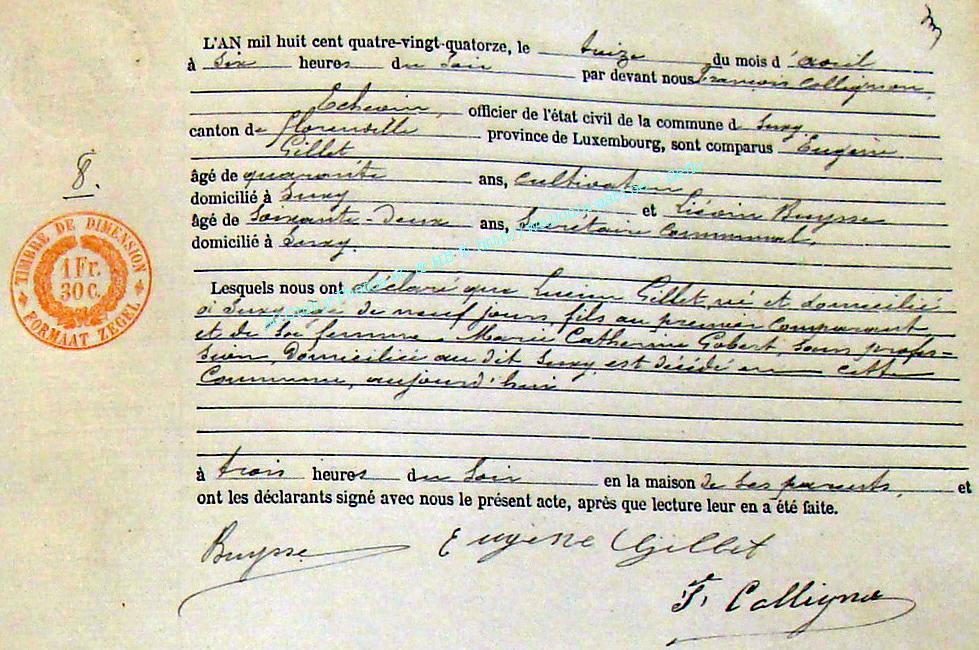 L'AN mil huit cent quatre-vingt-quatorze, le treize du mois d'avril
à Six heures du Soir par devant nous François Collignon,
Echevin, officier de l'état civil de la commune de Suxy
canton de Florenville province de Luxembourg, sont comparus Eugène
Gillet
8.
âgé de quarante ans, Cultivateur,
domicilié à Suxy et Liévin Buysse
âgé de Soixante-Deux ans, Secrétaire Communal,
domicilié à Suxy.
Lesquels nous ont déclaré que Lucien Gillet, né et domicilié
à Suxy, âgé de neuf jours, fils au premier Comparant
et de Sa femme Marie Catherine Gobert, Sans profes-
sion, Domiciliée au dit Suxy, est décédé en cette
Commune, aujourd'hui
à trois heures du Soir en la maison de Ses parents, et
ont les déclarants signé avec nous le présent acte, après que lecture leur en a été faite.
Buysse Eugène Gillet
F. Collignon
TIMBRE DE DIMENSION
1 Fr.
30 C.
FORMAAT ZEGEL